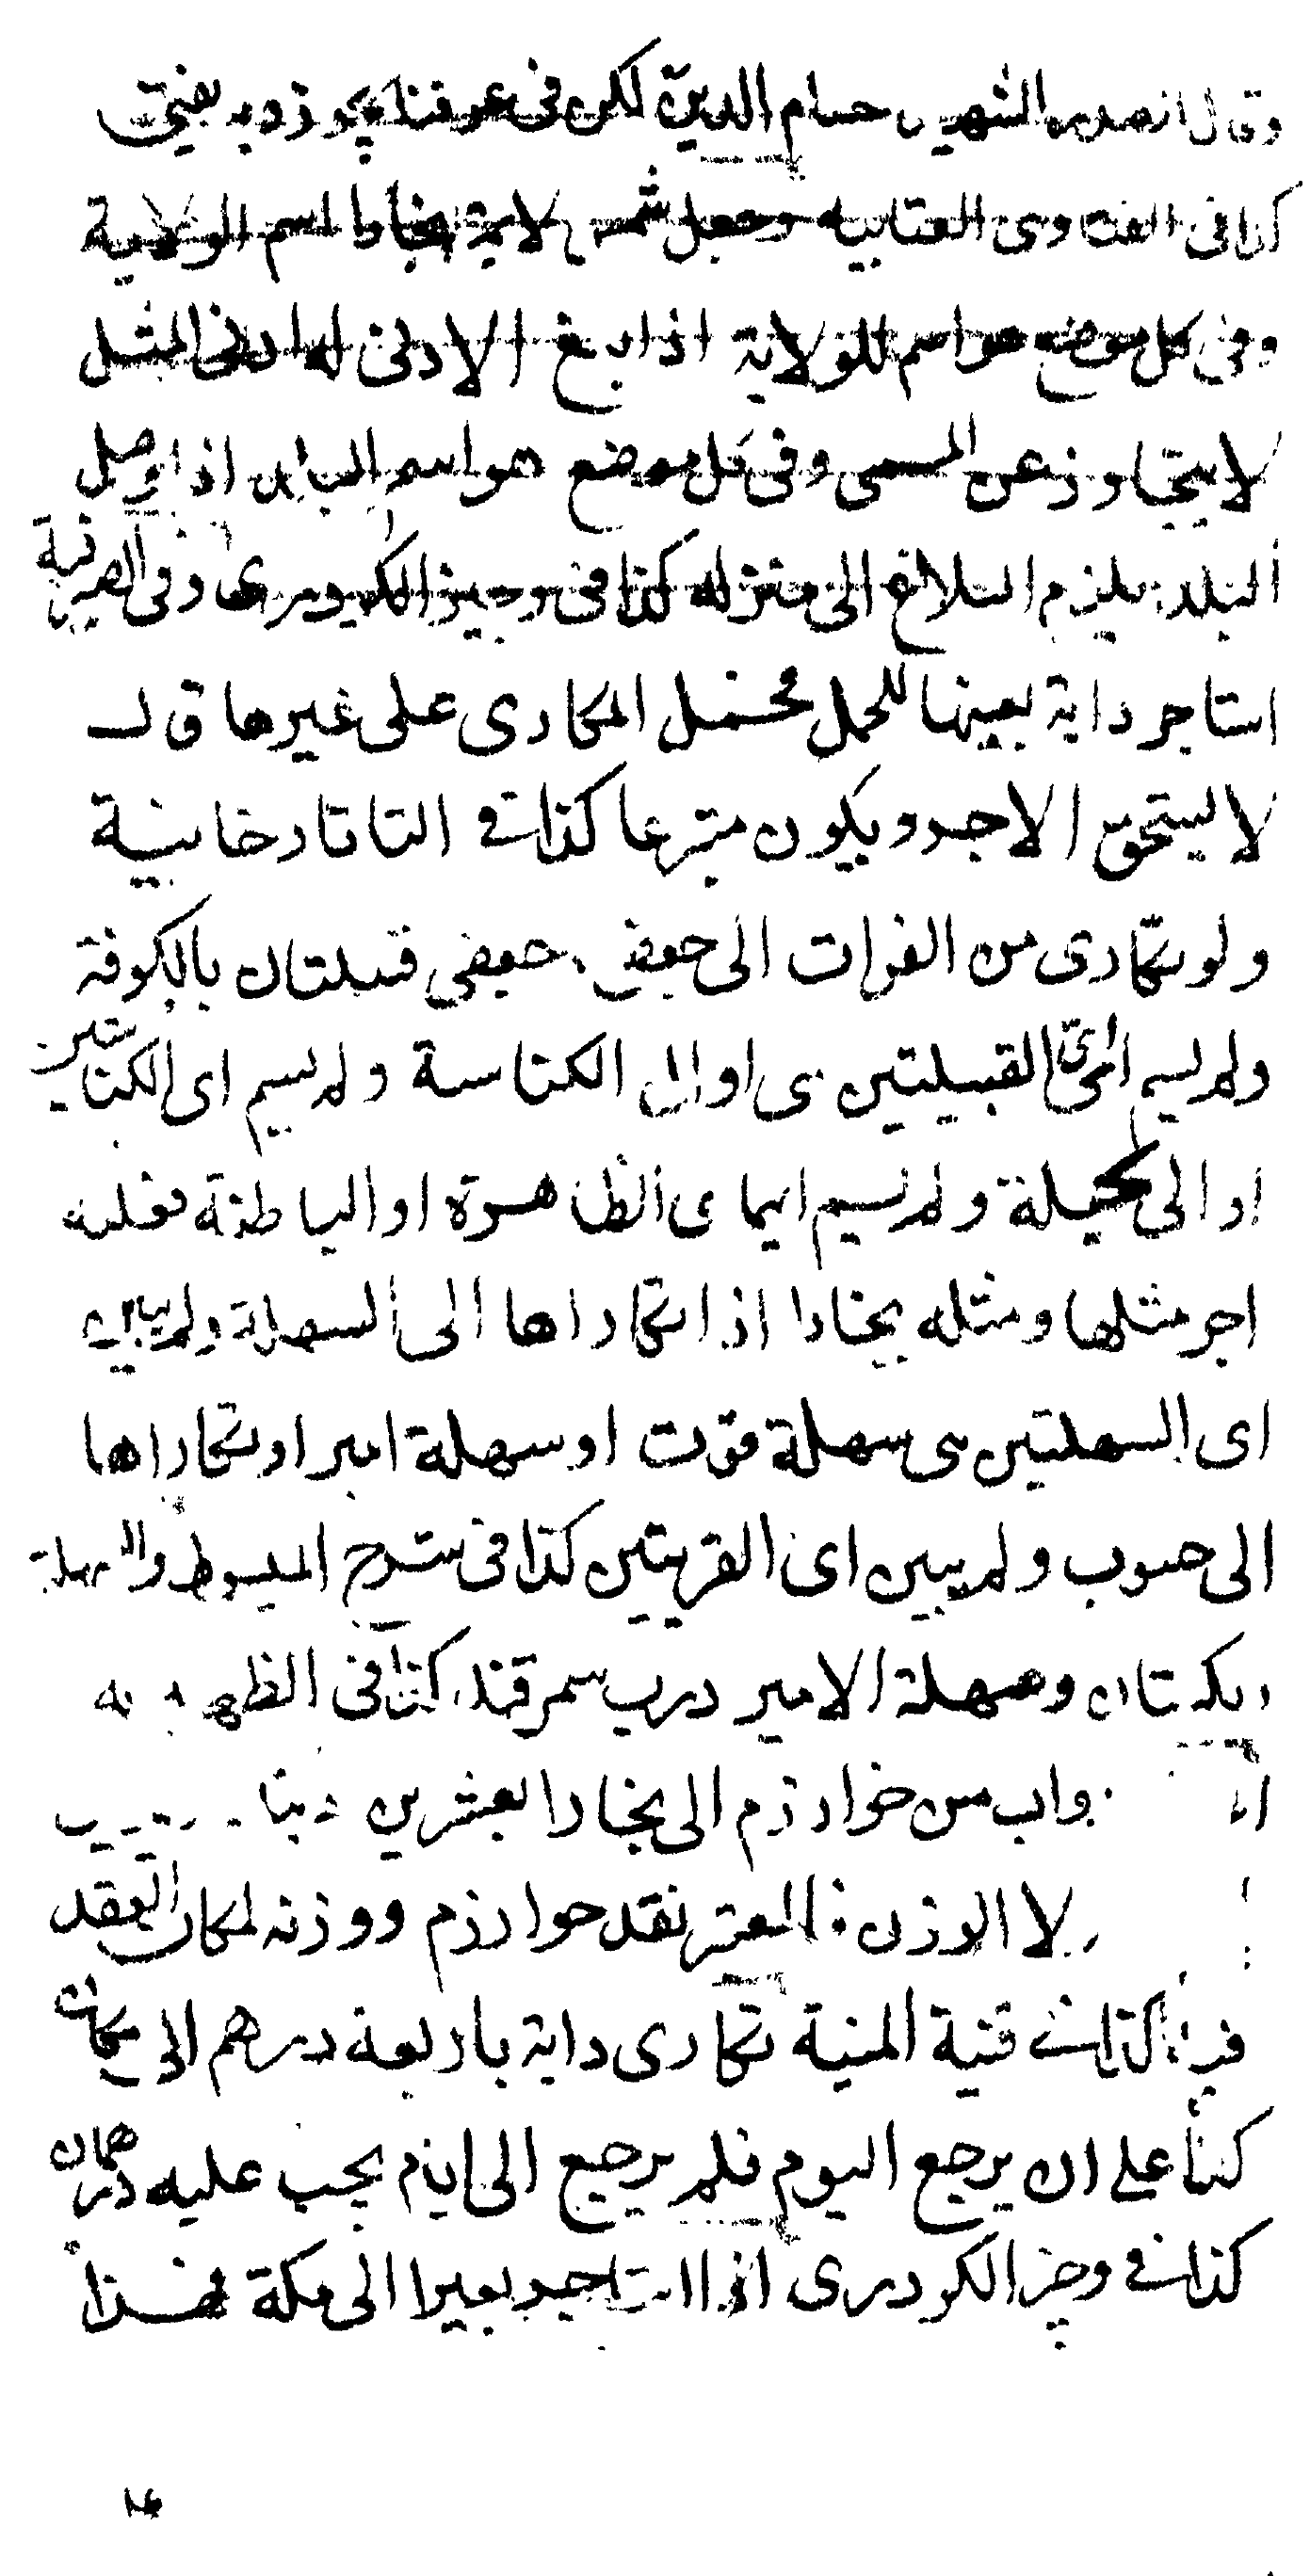 وقال الصدر الشهيد حسام الدين لكن فى عرفنا يجوز وبه يفتى
كذا فى الفتاوى العتابيه وجعل شمس الايمة بخارا اسم الولاية
وفى كل موضع هو اسم للولاية اذا بلغ الادنى له ادنى المثل
لا يتجاوز عن المسمى وفى كل موضع هو اسم البلد اذا وصل
البلد يلزم البلاغ الى منزله كذا فى وجيز الكردرى وفى الصيرفية
استاجر دابة بعينها للحمل فحمل المكارى على غيرها قال
لا يستحق الاجر ويكون متبرعا كذا فى التاتارخانية
ولو تكارى من الفرات الى جعفى وجعفى قبيلتان بالكوفة
ولم يسم احدى القبيلتين هى او الى الكناسة ولم يسم اى الكناستين
او الى بجيلة ولم يسم ايما هى الظاهرة او الباطنة فعليه
اجر مثلها ومثله بخارا اذا تكاراها الى السهلة ولم يبين
اى السهلتين هى سهلة قوت او سهلة امير او تكاراها
الى حنوب ولم يبين اى القريتين كذا فى شرح المبسوط والسهلة
ريكستان وسهلة الامير درب سمرقند كذا فى الظهيريه
دواب من خوارزم الى بخارا بعشرين دينا
لا الوزن فالمعتبر نقد خوارزم ووزنه لمكان العقد
فيه كذا فى قنية المنية تكارى دابة باربعة درهم الى مكان
كذا على ان يرجع اليوم فلم يرجع الى ايام يجب عليه درهمان
كذا فى وجيز الكردرى اذا استاجر بعيرا الى مكة فهذا